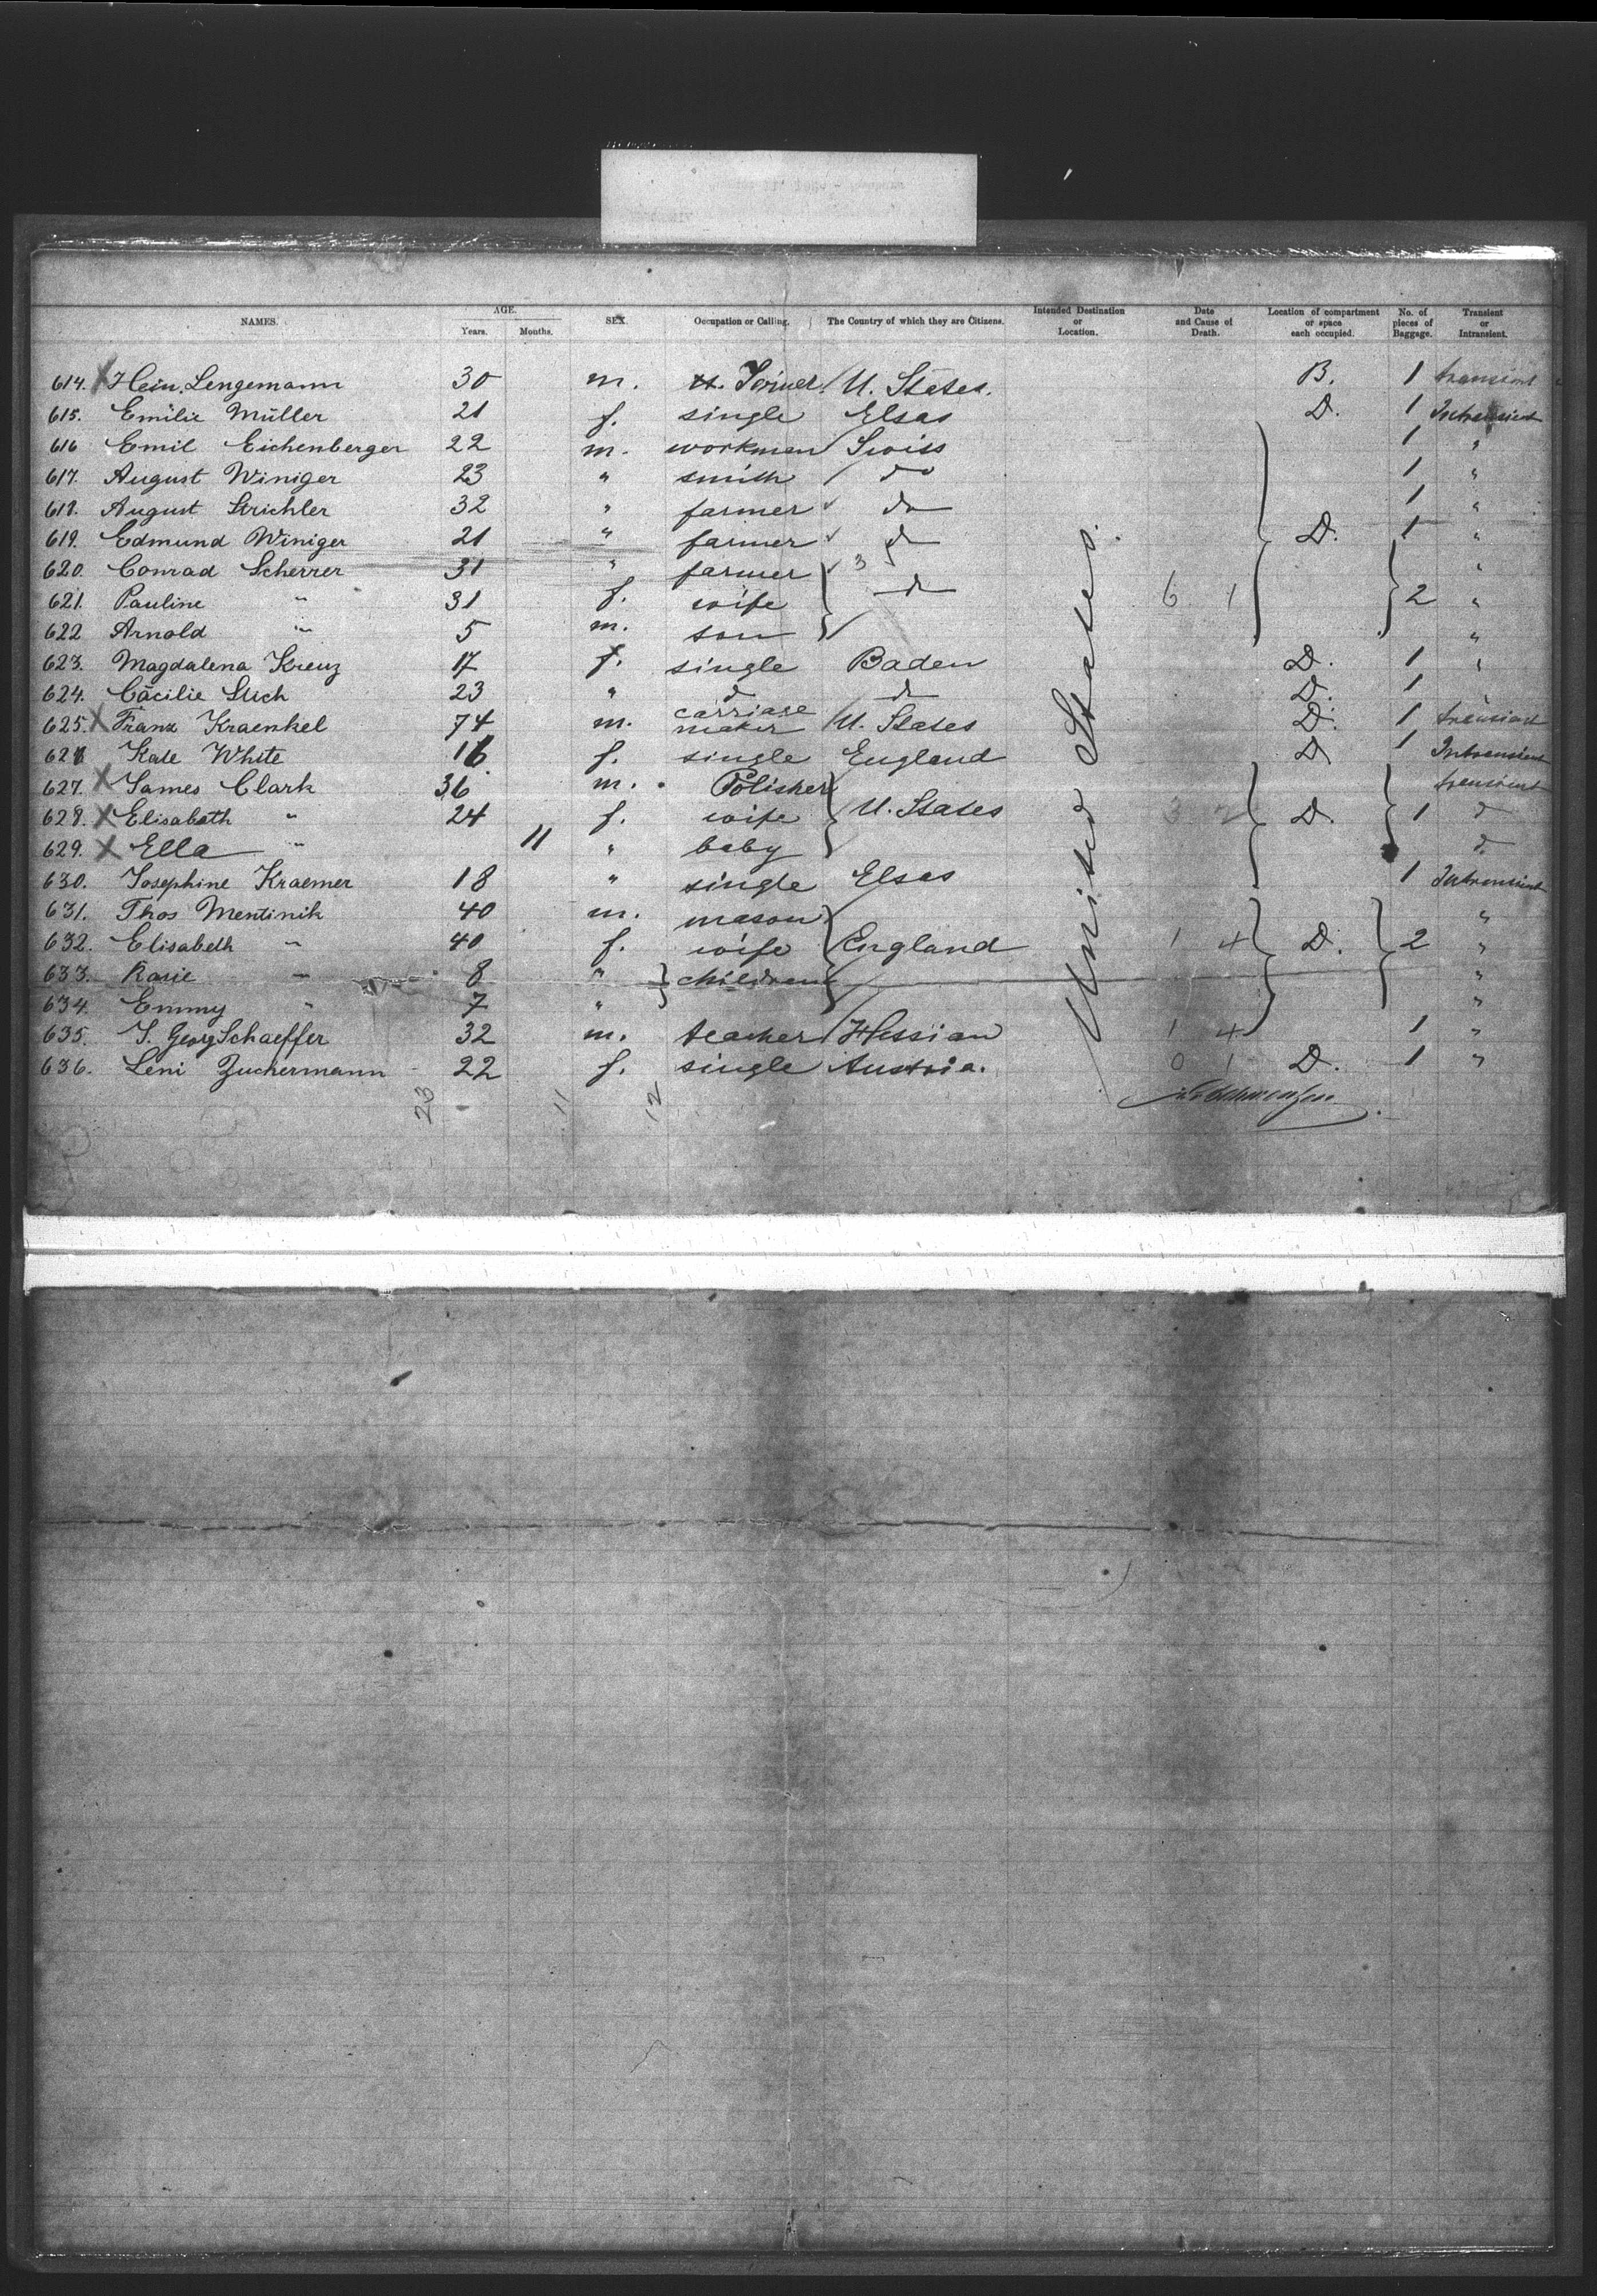 NAMES. AGE. Years. Months. SEX. Occupation or Calling. The Country of which they are Citizens. Intended Destination or Location. Date and Cause of Death. Location of compartment or space each occupied. No. of pieces of Baggage. Transient or Intransient.
614. X Hein. Lengemann 30 m. U. States. B. 1 transient
615. Emilie Müller 21 f. single Elsas D. 1 Intransient
616 Emil Eichenberger 22 m. workman Swiss 1 "
617. August Winiger 23 " smith do 1 "
618. August Strichler 32 " farmer do 1 "
619. Edmund Winiger 21 " farmer d D. 1 "
620. Conrad Scherrer 31 " farmer 3 "
621. Pauline " 31 f. wife d 6 1 2 "
622 Arnold " 5 m. son "
623. Magdalena Kreuz 17 f. single Baden D. 1 "
624. Cäcilie 23 " d d D. 1 "
625. X Franz Kraenkel 74 m. carriage maker U. States D. 1 transient
626 Kate White 16 f. single England D 1 Intransient
627. X James Clark 36 m. Polisher transient
628. X Elisabeth " 24 f. wife U. States 3 2 D. 1 d
629. X Ella " 11 " baby d.
630. Josephine Kraemer 18 " single Elsas 1 Intransient
631. Thos Mentinik 40 m. mason "
632. Elisabeth " 40 f. wife England 1 4 D. 2 "
633. Rosie " 8 " children "
634. Emmy " 7 " "
635. J. Georg Schaeffer 32 m. teacher Hessian 1 4 1 "
636. Leni Zuckermann 22 f. single Austria. 0 1 D. 1 "
United States.
23 11 12